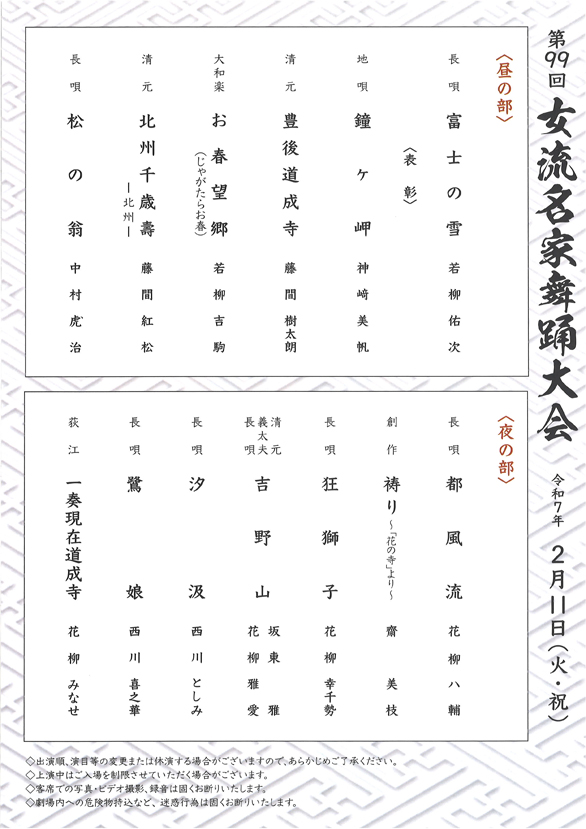 第99回 女流名家舞踊大会
令和7年 2月11日(火・祝)
〈昼の部〉
長唄 富士の雪 若柳佑次
〈表彰〉
地唄 鐘ヶ岬 神﨑美帆
清元 豊後道成寺 藤間樹太朗
大和楽 お春望郷 (じゃがたらお春) 若柳吉駒
清元 北州千歳壽 ―北州― 藤間紅松
長唄 松の翁 中村虎治
〈夜の部〉
長唄 都風流 花柳ハ輔
創作 祷り ~「花の寺」より~ 齋美枝
長唄 狂獅子 花柳幸千勢
清元
義太夫
長唄 吉野山 坂東雅
花柳雅愛
長唄 汐汲 西川としみ
長唄 鷺娘 西川喜之華
荻江 一奏現在道成寺 花柳みなせ
◇出演順、演目等の変更または休演する場合がございますので、あらかじめご了承ください。
◇上演中はご入場を制限させていただく場合がございます。
◇客席での写真・ビデオ撮影、録音は固くお断りいたします。
◇劇場内への危険物持込など、迷惑行為は固くお断りいたします。